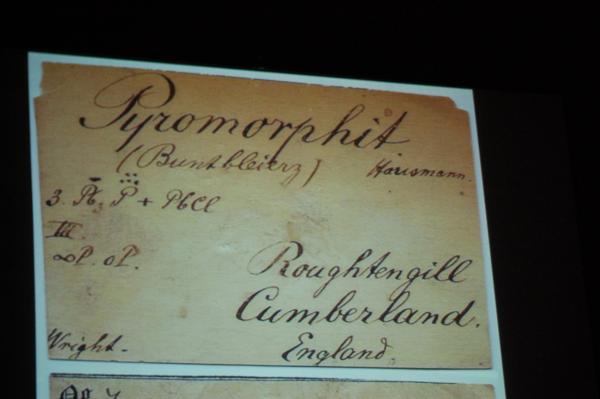 Pyromorphit
(Buntbleierz) Hausmann.
3. Pb. P + PbCl
III.
∞P. oP.
Roughtengill
Cumberland.
Wright.
England.